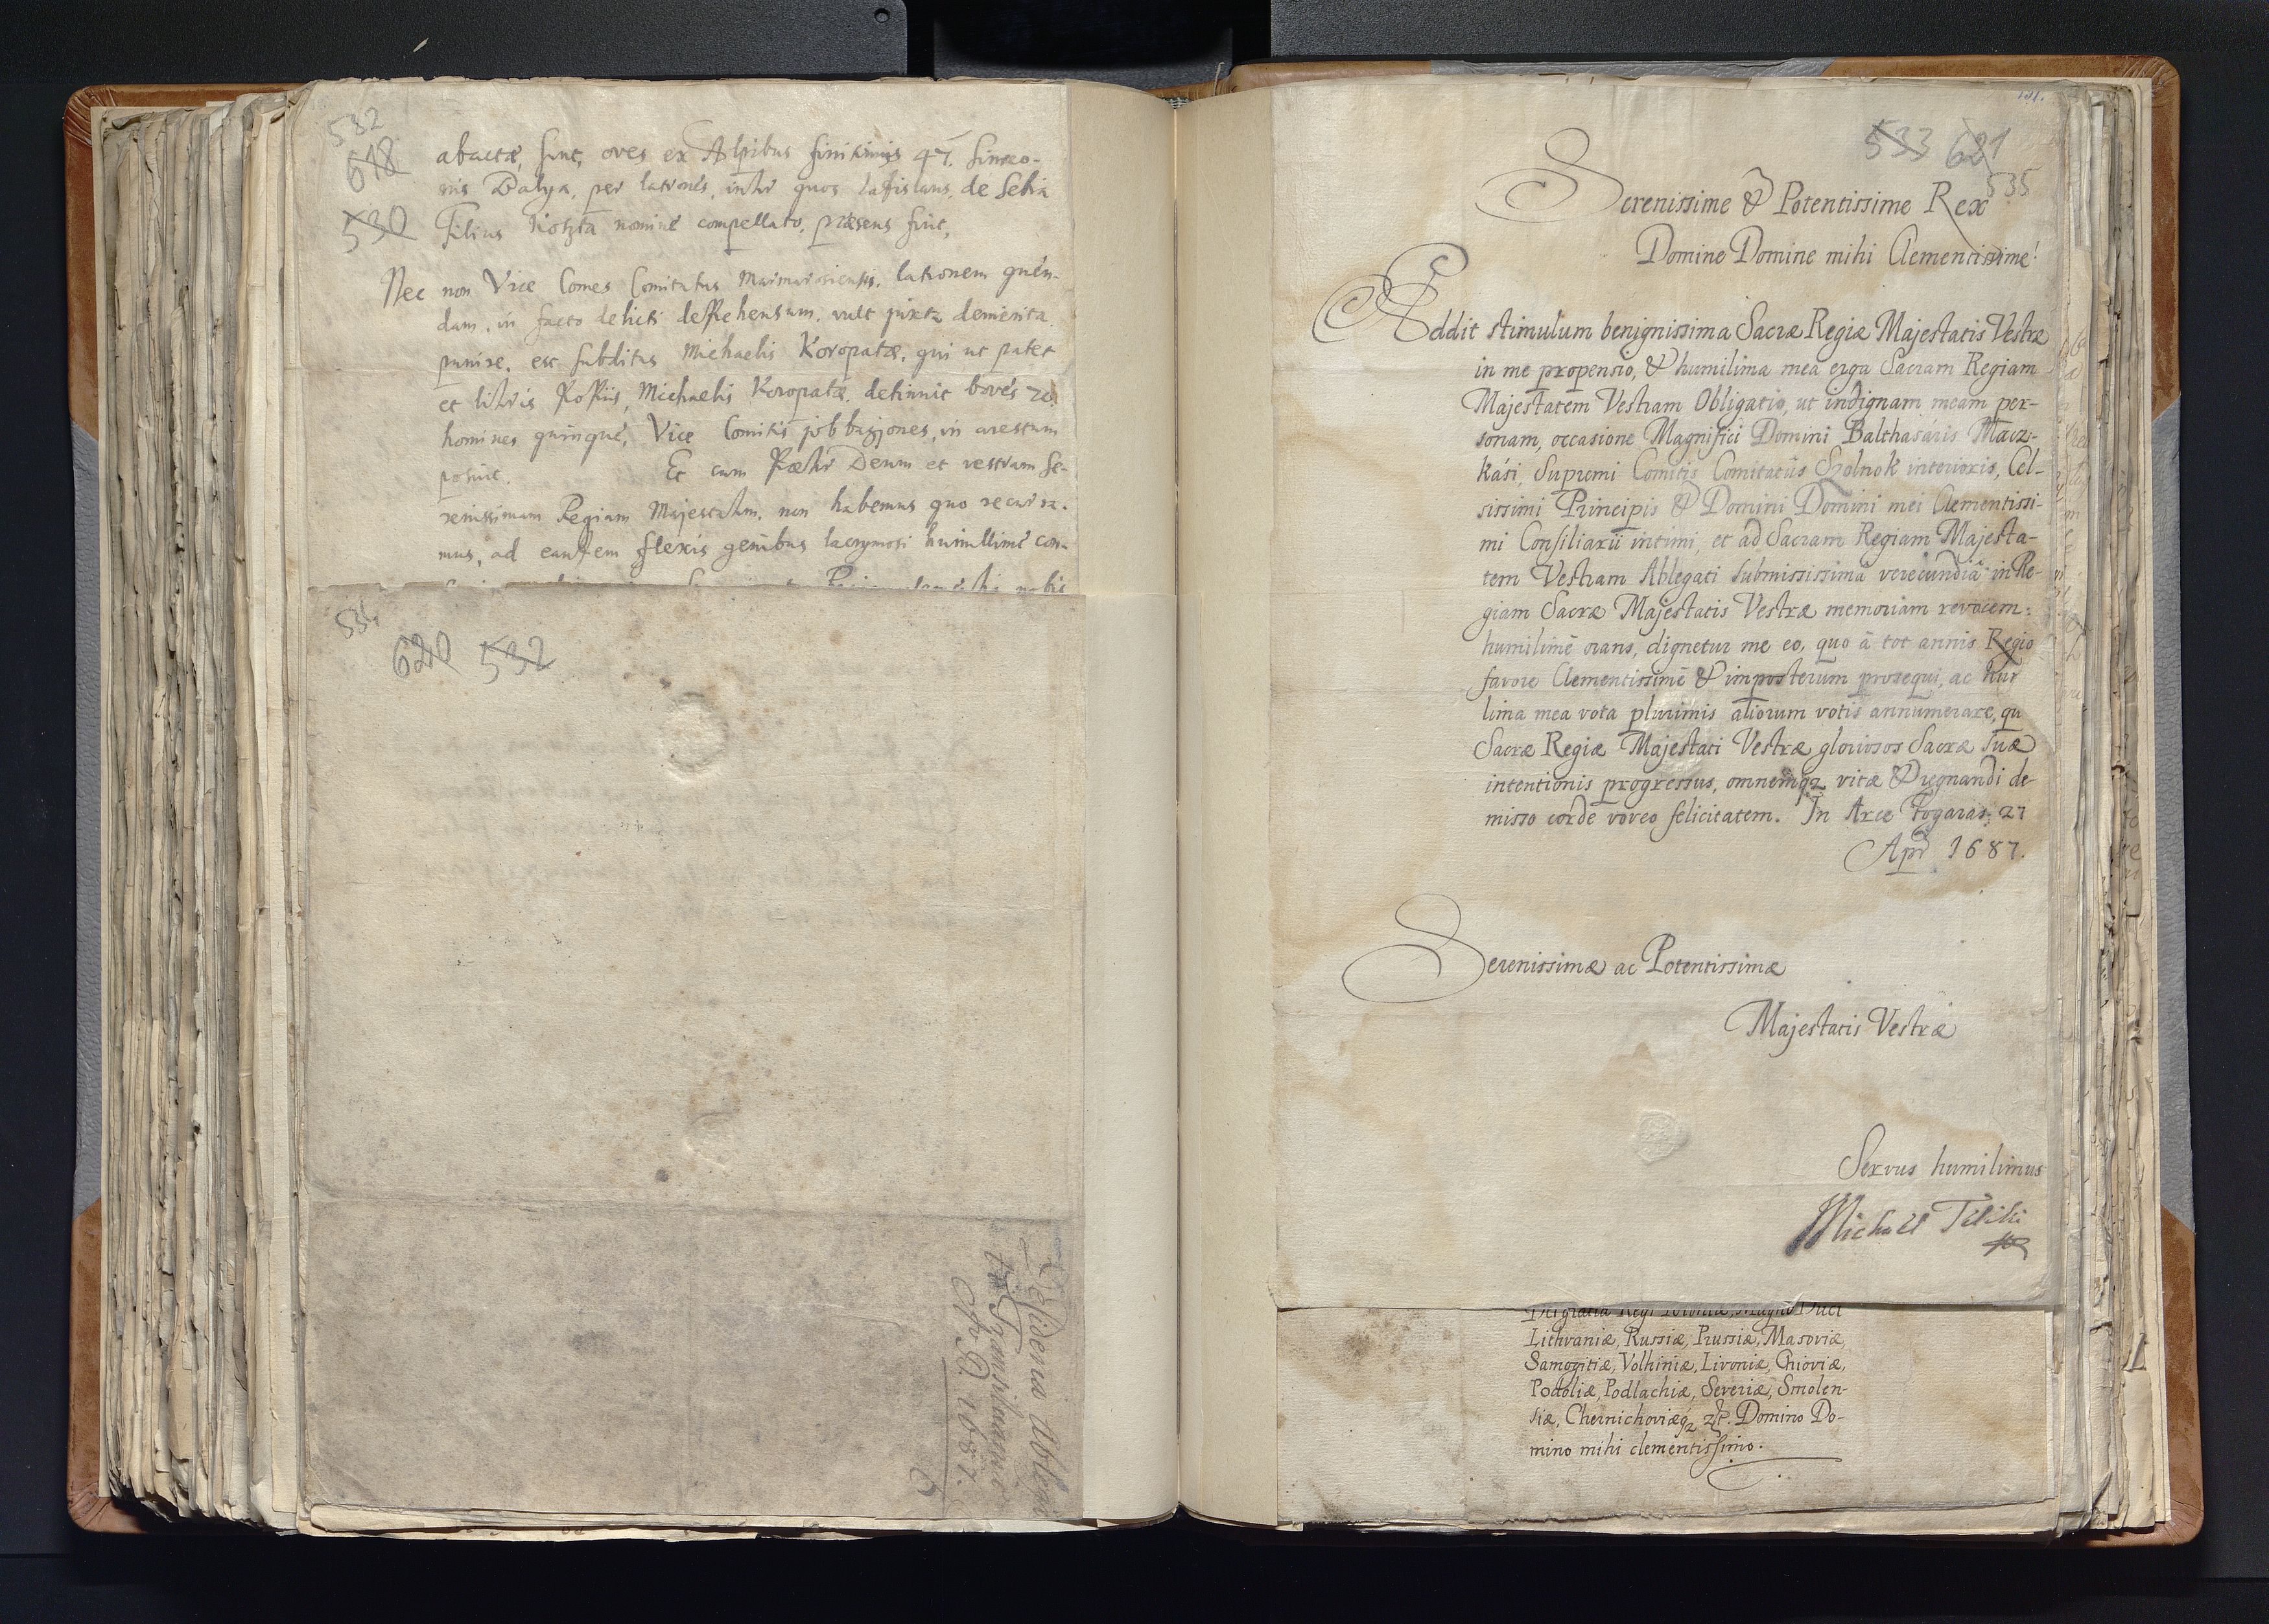 532
618
530
abactæ, sunt, oves ex Alpibus finitimis 47. Simeo-
nis Balya, per latrones, inter quos de Sebia
Filius Kotzta nomine compellato, præsens fuit,
Nec non Vice Comes Comitatus Marmarosiensis, latronem quen-
dam, in facto delicti deprehensum, vult juxta demerita
punire, est subditus Michaelis Koropatæ, qui ut patet
et litteris Michaelis Koropatæ, detinuit boves 20
homines quinque, Vice Comitis jobbagiones, in arestum
posuit. Et cum Præter Deum et vestram Se-
renissimam Regiam Majestatem, non habemus quo recurra-
mus, ad eandem flexis genibus lacrymosi humillime con-
nobis
534
620 532
Residens Ablega
Transilvanic
A. D. 1687.
533 621
535
Serenissime & Potentissime Rex
Domine Domine mihi Clementissime!
Addit stimulum benignissima Sacræ Regiæ Majestatis Vestræ
in me propensio, & humilima mea erga Sacram Regiam
Majestatem Vestram Obligatio, ut indignam meam per-
sonam, occasione Magnifici Domini Balthasaris Macz-
kási, Supremi Comitis Comitatûs Szolnok interioris, Cel-
sissimi Principis & Domini Domini mei Clementissi-
mi Consiliarii intimi, et ad Sacram Regiam Majesta-
tem Vestram Ablegati submississimâ verecundiâ in Re-
giam Sacræ Majestatis Vestræ memoriam revocem:
humilimè orans, dignetur me eo, quo à tot annis Regio
favore Clementissimè & imposterum prosequi, ac hu
lima mea vota plurimis aliorum votis annumerare, qu
Sacræ Regiæ Majestati Vestræ gloriosos Sacræ suæ
intentionis progressus, omnemqz vitæ & regnandi de-
misso corde voveo felicitatem. In Arce Fogaras 27
Apr 1687.
Serenissimæ ac Potentissimæ
Majestatis Vestræ
Servus humilimus
Michael Teleki
Dei gratia Regi Poloniæ, Magno Duci
Lithvaniæ, Russiæ, Prussiæ, Masoviæ,
Samogitiæ, Volhiniæ, Livoniæ, Chioviæ,
Podoliæ, Podlachiæ, Severiæ, Smolen-
siæ, Chernichoviæqz Domino Do-
mino mihi clementissimo.